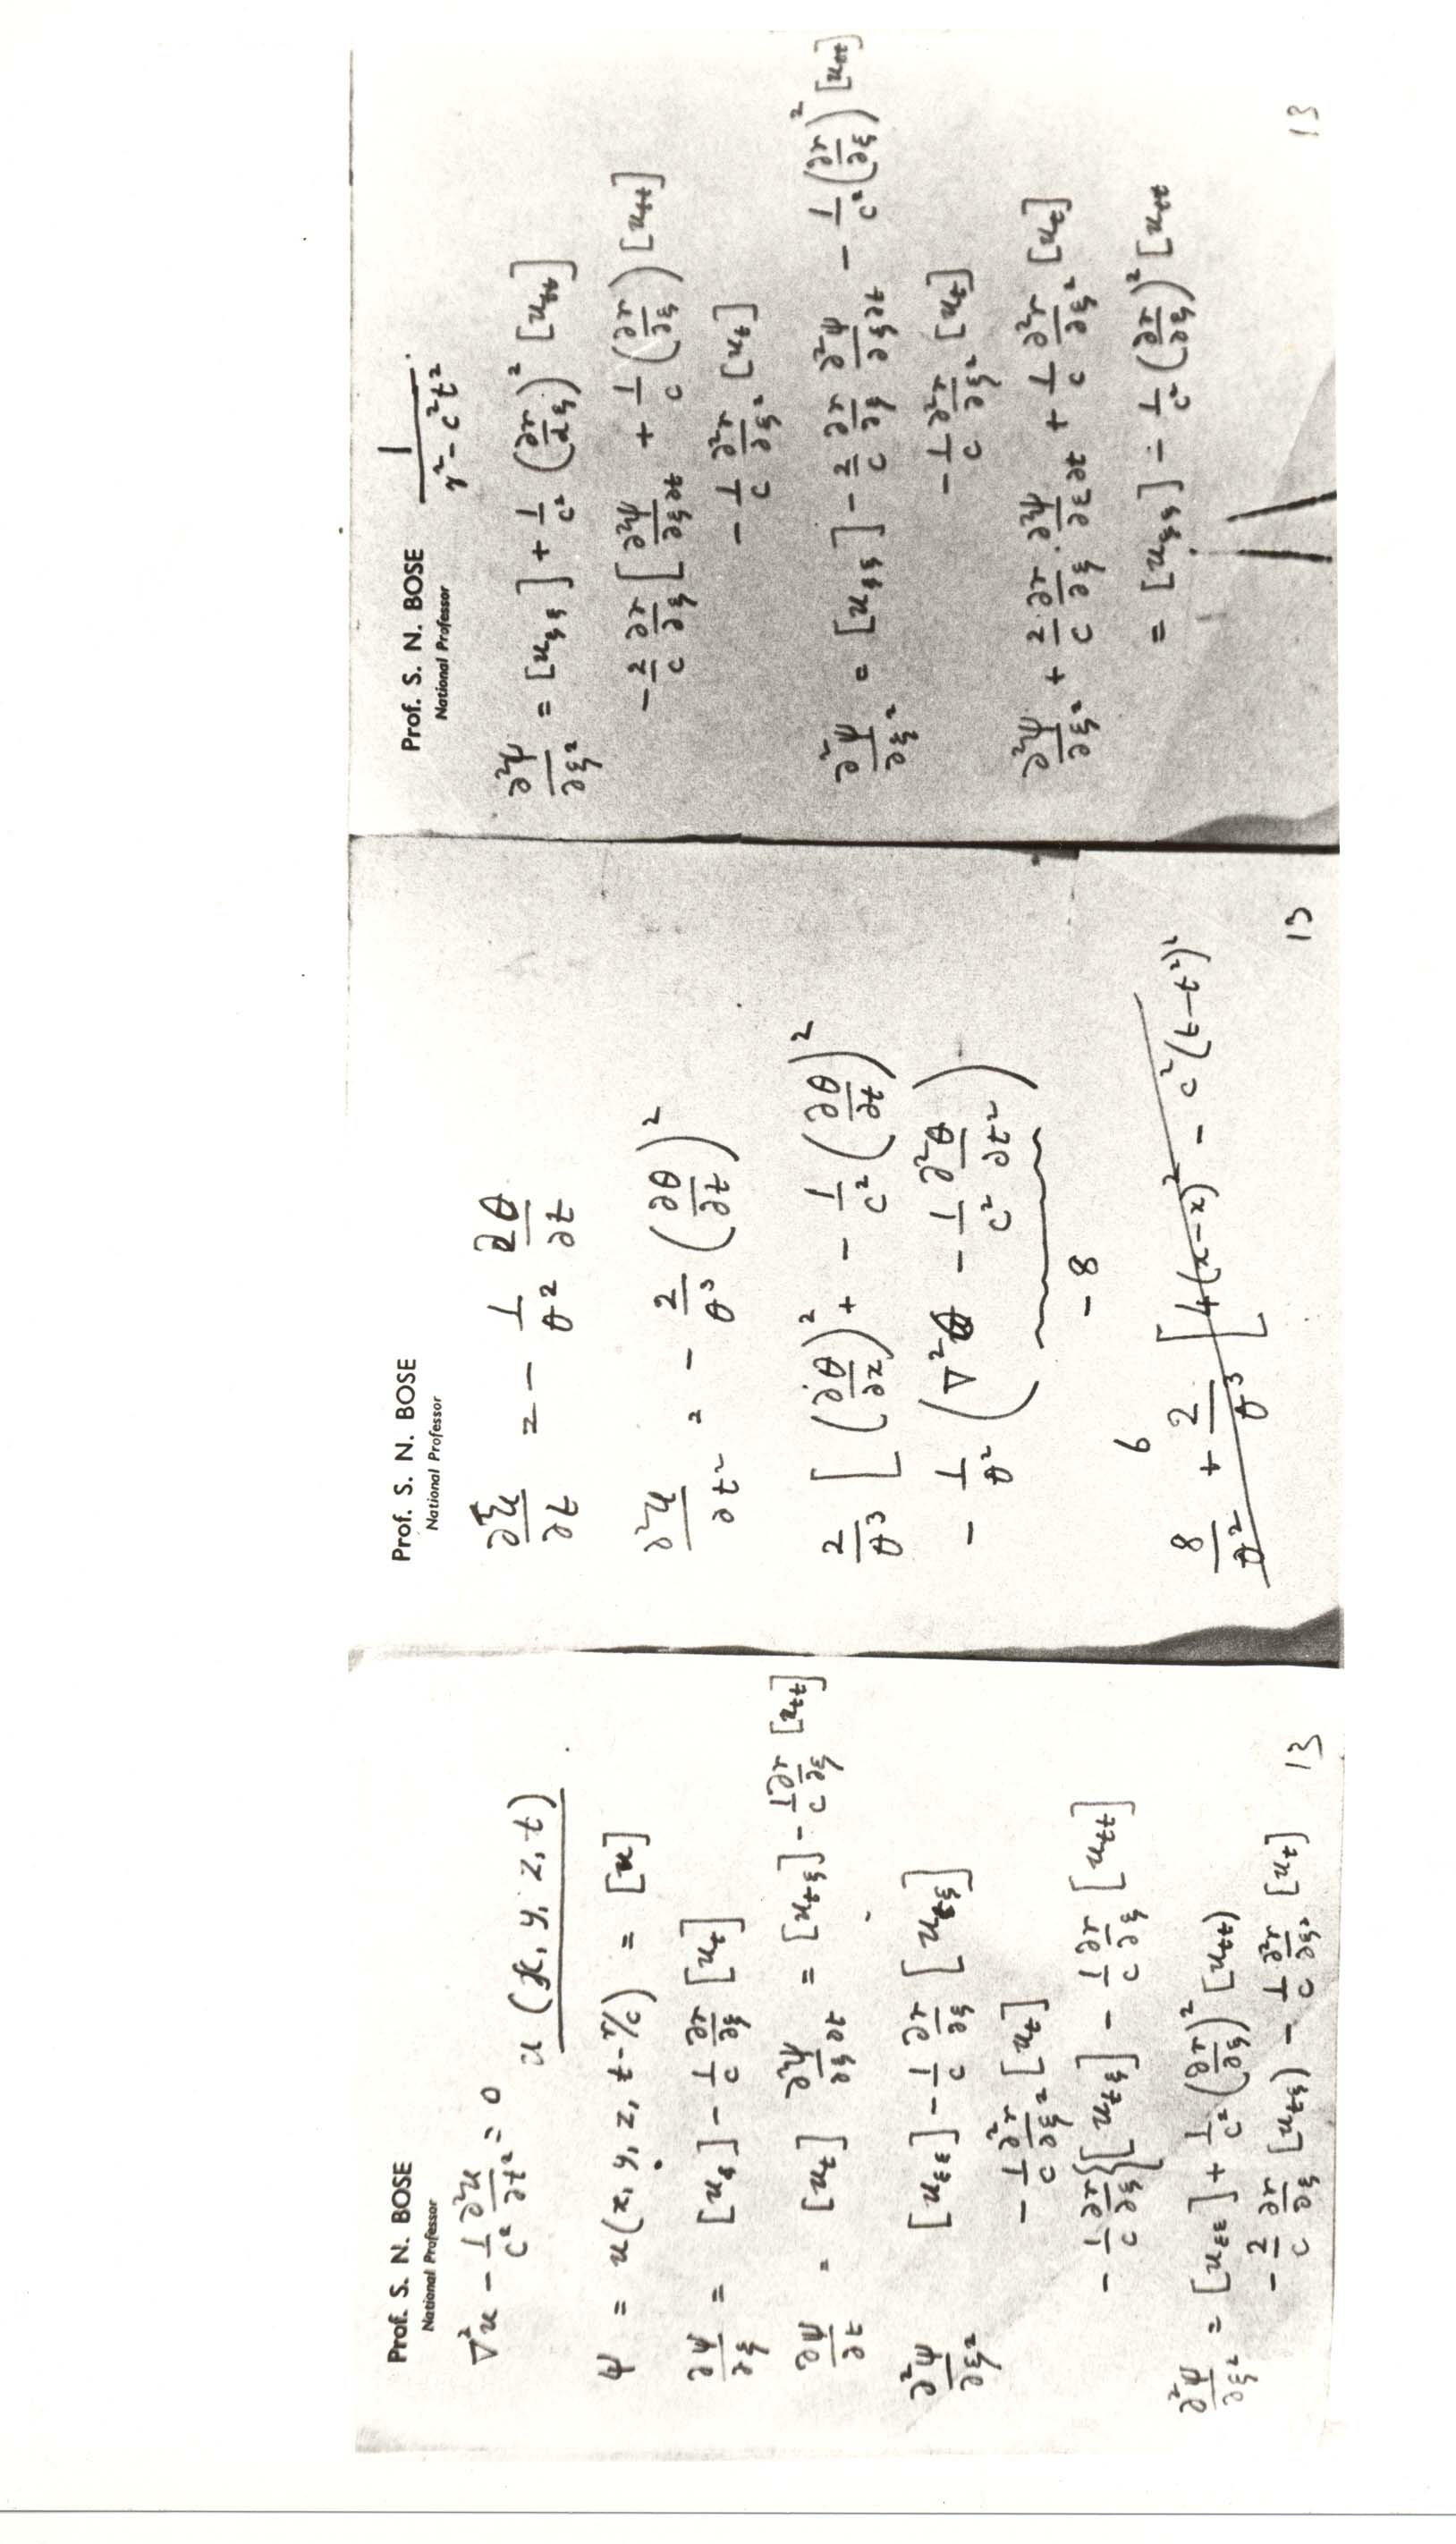 Prof. S. N. BOSE
National Professor
∇²u − 1/c² ∂²u/∂t² = 0
u (x, y, z, t)
ψ = u(x, y, z, t − r/c) = [u]
∂ψ/∂ξ = [u_ξ] − 1/c ∂r/∂ξ [u_t]
∂ψ/∂t = [u_t] ∂²ψ/∂ξ∂t = [u_tξ] − 1/c ∂r/∂ξ [u_tt]
∂²ψ/∂ξ² [u_ξξ] − 1/c ∂r/∂ξ [u_tξ]
− 1/c ∂²r/∂ξ² [u_t]
− 1/c ∂r/∂ξ {[u_tξ] − 1/c ∂r/∂ξ [u_tt]
∂²ψ/∂ξ² = [u_ξξ] + 1/c² (∂r/∂ξ)² [u_tt)
− 2/c ∂r/∂ξ [u_tξ) − 1/c ∂²r/∂ξ² [u_t]
13
Prof. S. N. BOSE
National Professor
∂u/∂t = − 1/θ² ∂θ/∂t
∂²u/∂t² = − 2/θ³ (∂θ/∂t)²
2/θ³ [(∂θ/∂x)² + − 1/c² (∂θ/∂t)²
− 1/θ² (∇²θ − 1/c² ∂²θ/∂t²)
− 8
6
8/θ² + 2/θ³ [4(x−x)² − c²(t−t²)²
13
Prof. S. N. BOSE
National Professor
1/r² − c²t²
∂²ψ/∂ξ² = [u_ξξ] + 1/c² (∂r/∂ξ)² [u_tt]
− 2/c ∂r/∂ξ [∂²ψ/∂ξ∂t + 1/c (∂r/∂ξ) [u_tt]
− 1/c ∂²r/∂ξ² [u_t]
∂²ψ/∂ξ² = [u_ξξ] − 2/c ∂r/∂ξ ∂²ψ/∂ξ∂t − 1/c² (∂r/∂ξ)² [u_tt]
− 1/c ∂²r/∂ξ² [u_t]
∂²ψ/∂ξ² + 2/c ∂r/∂ξ · ∂²ψ/∂ξ∂t + 1/c ∂²r/∂ξ² [u_t]
= [u_ξξ] − 1/c² (∂r/∂ξ)² [u_tt
13